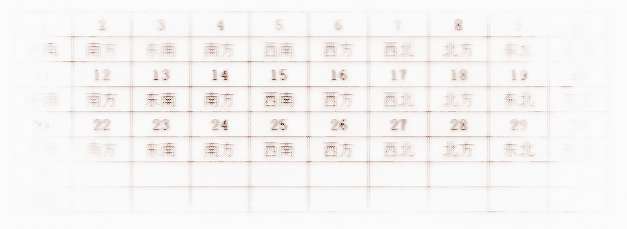 2 3 4 5 6 7 8
南方 东南 南方 西南 西方 西北 北方 东北
12 13 14 15 16 17 18 19
南方 东南 南方 西南 西方 西北 北方 东北
22 23 24 25 26 27 28 29
南方 东南 南方 西南 西方 西北 北方 东北